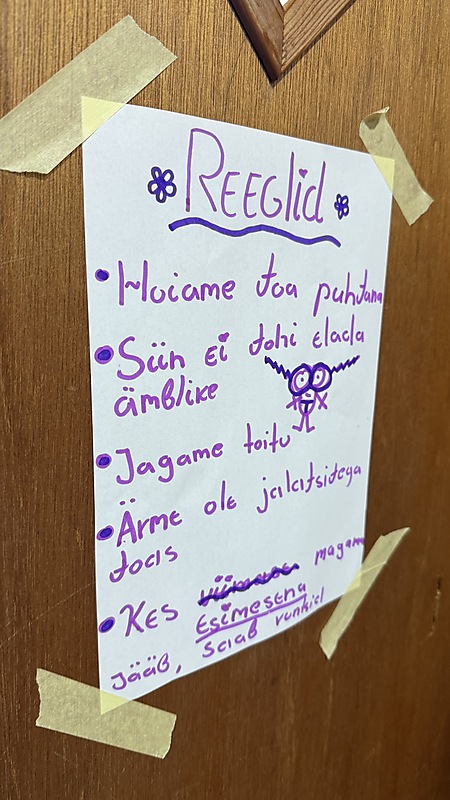 REEGlid
Hoiame toa puhtana
Siin Ei tohi elada
ämblike
Jagame toitu
Ärme ole jalatsitega
toas
KES magama
Esimesena
jääb, saab vuntsid